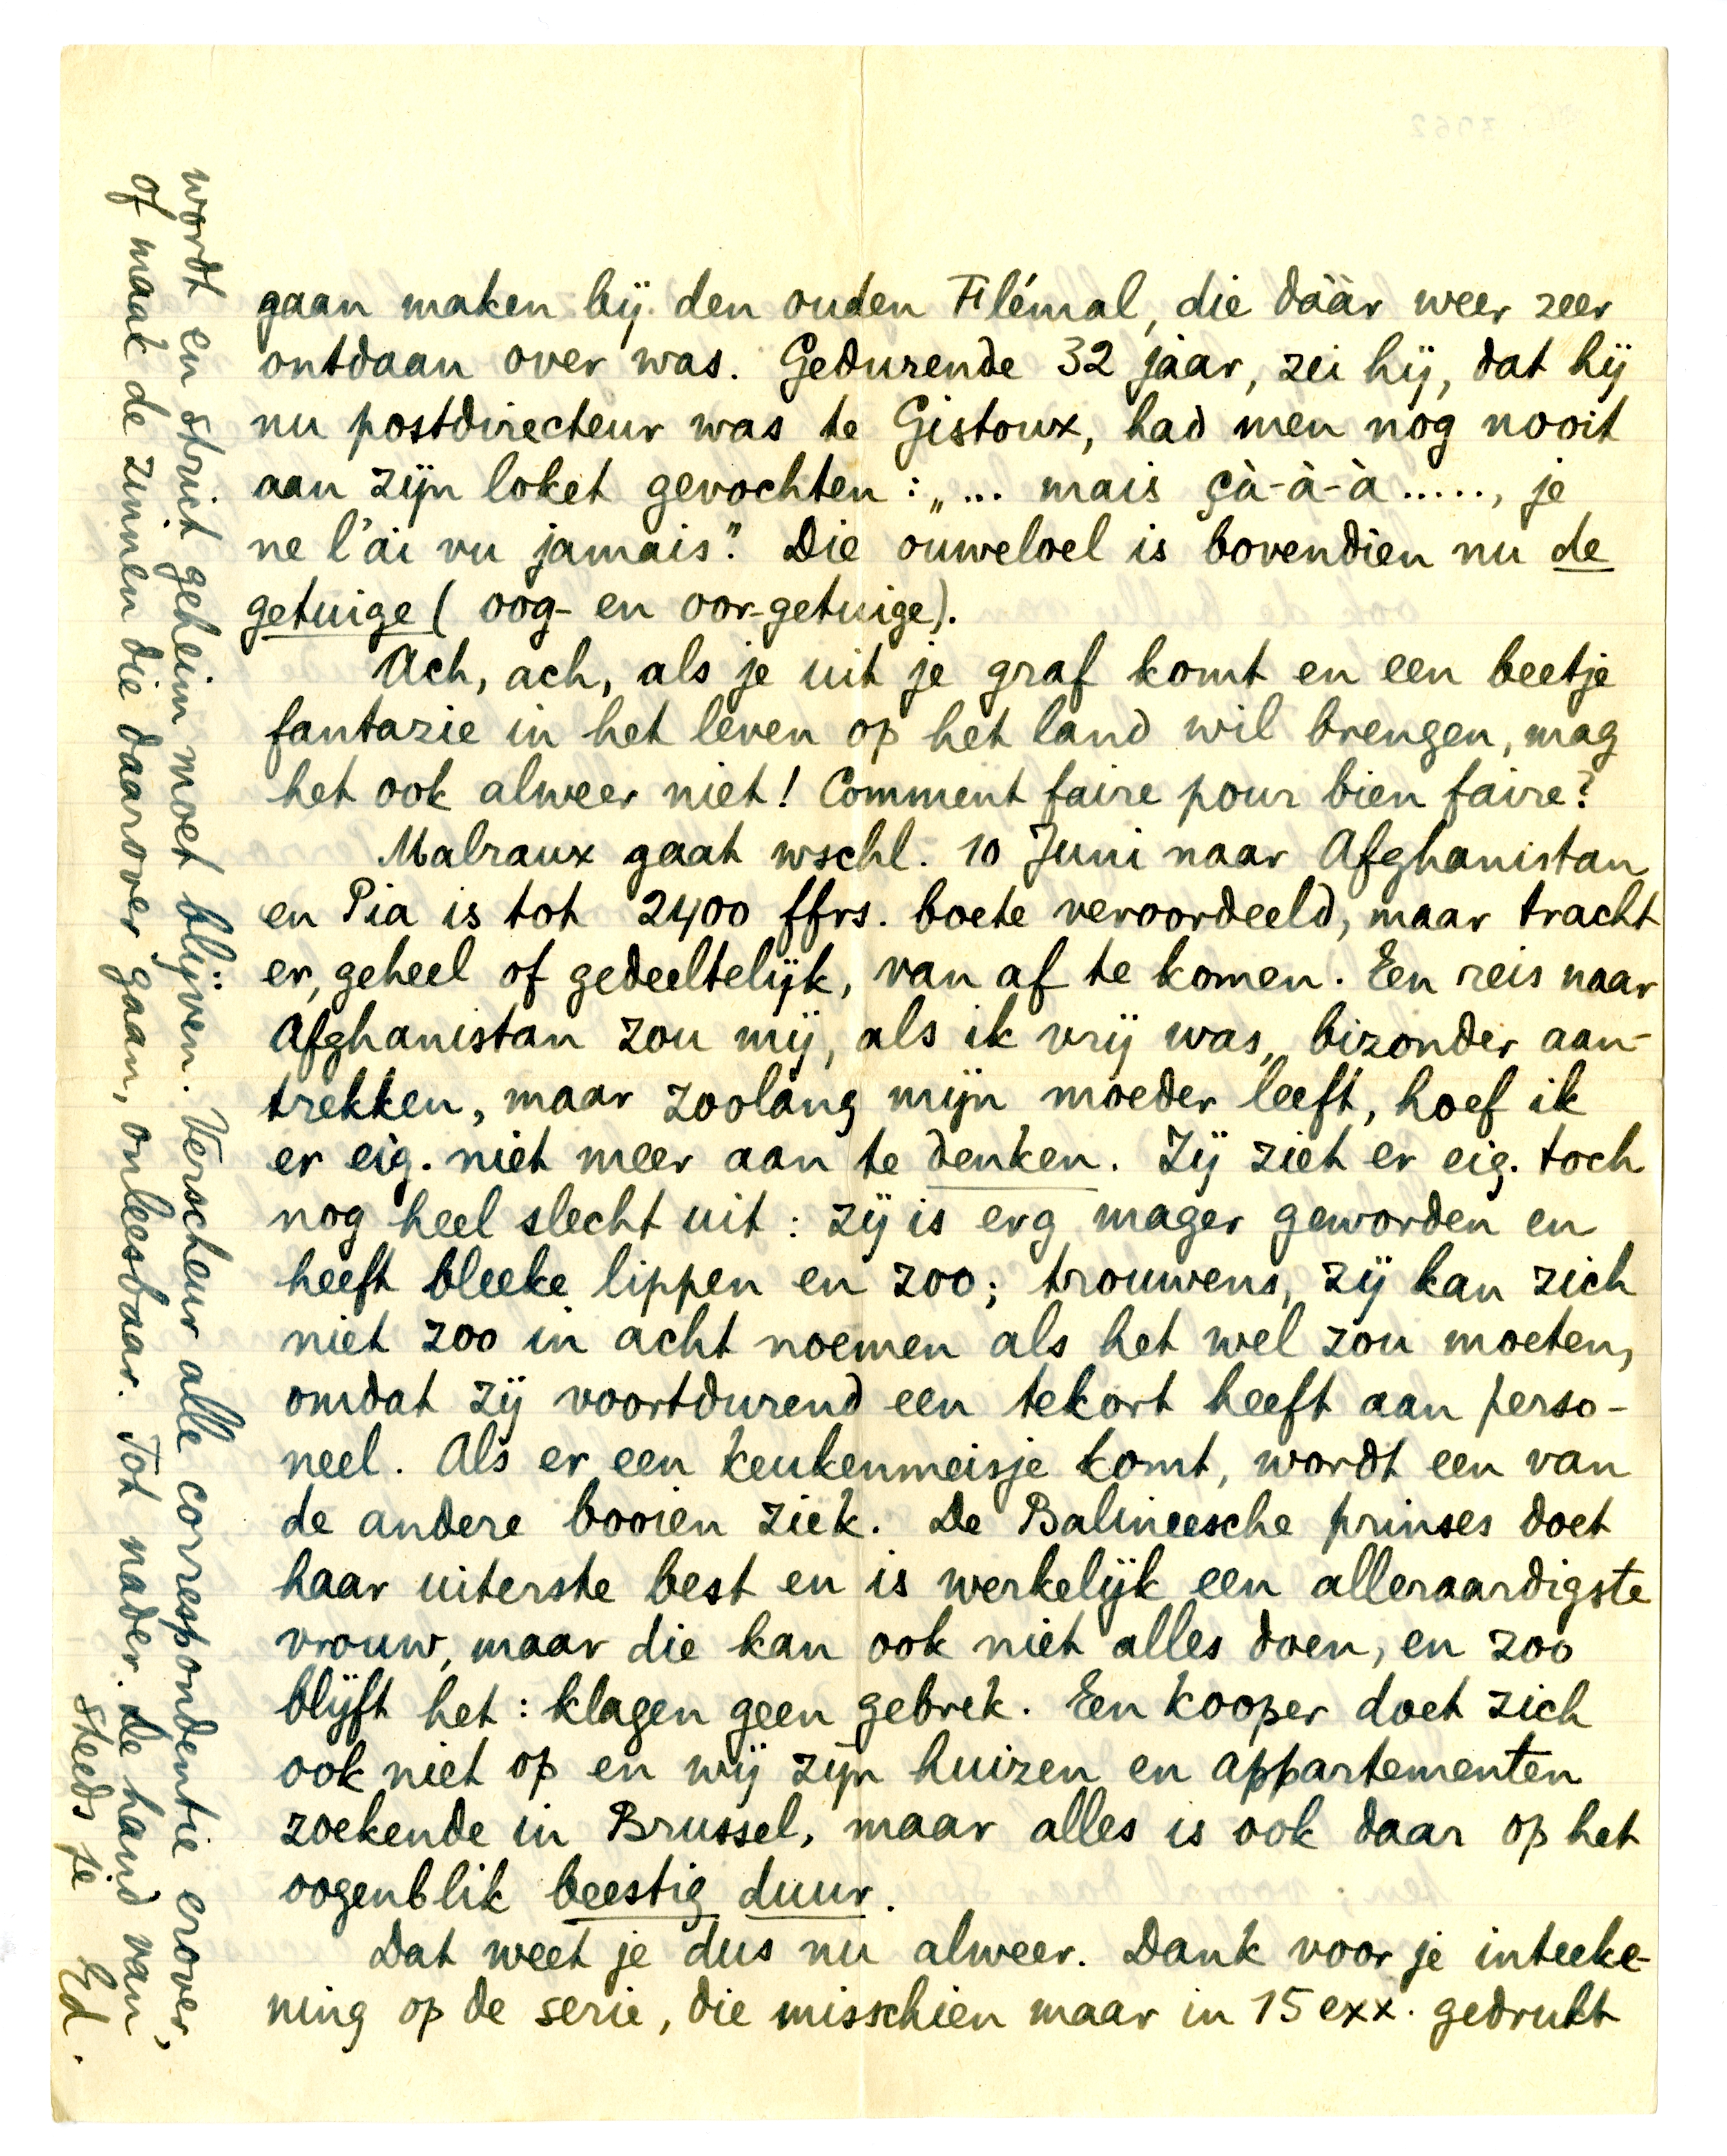 gaan maken bij den ouden Flémal, die dààr weer zeer
ontdaan over was. Gedurende 32 jaar, zei hij, dat hij
nu postdirecteur was te Gistoux, had men nog nooit
aan zijn loket gevochten: „... mais çà-à-à....., je
ne l'ai vu jamais". Die ouweloel is bovendien nu de
getuige (oog- en oor-getuige).
Ach, ach, als je uit je graf komt en een beetje
fantazie in het leven op het land wil brengen, mag
het ook alweer niet! Comment faire pour bien faire?
Malraux gaat wschl. 10 Juni naar Afghanistan
en Pia is tot 2400 ffrs. boete veroordeeld, maar tracht
er, geheel of gedeeltelijk, van af te komen. Een reis naar
Afghanistan zou mij, als ik vrij was, bizonder aan-
trekken, maar zoolang mijn moeder leeft, hoef ik
er eig. niet meer aan te denken. Zij ziet er eig. toch
nog heel slecht uit: zij is erg mager geworden en
heeft bleeke lippen en zoo; trouwens, zij kan zich
niet zoo in acht noemen als het wel zou moeten,
omdat zij voortdurend een tekort heeft aan perso-
neel. Als er een keukenmeisje komt, wordt een van
de andere booien ziek. De Balineesche prinses doet
haar uiterste best en is werkelijk een alleraardigste
vrouw, maar die kan ook niet alles doen, en zoo
blijft het: klagen geen gebrek. Een kooper doet zich
ook niet op en wij zijn huizen en appartementen
zoekende in Brussel, maar alles is ook daar op het
oogenblik beestig duur.
Dat weet je dus nu alweer. Dank voor je inteeke-
ning op de serie, die misschien maar in 15 exx. gedrukt
wordt en strict geheim moet blijven. Verscheur alle correspondentie erover,
of maak de zinnen die daarover gaan, onleesbaar. Tot nader. De hand van
steeds je
Ed.